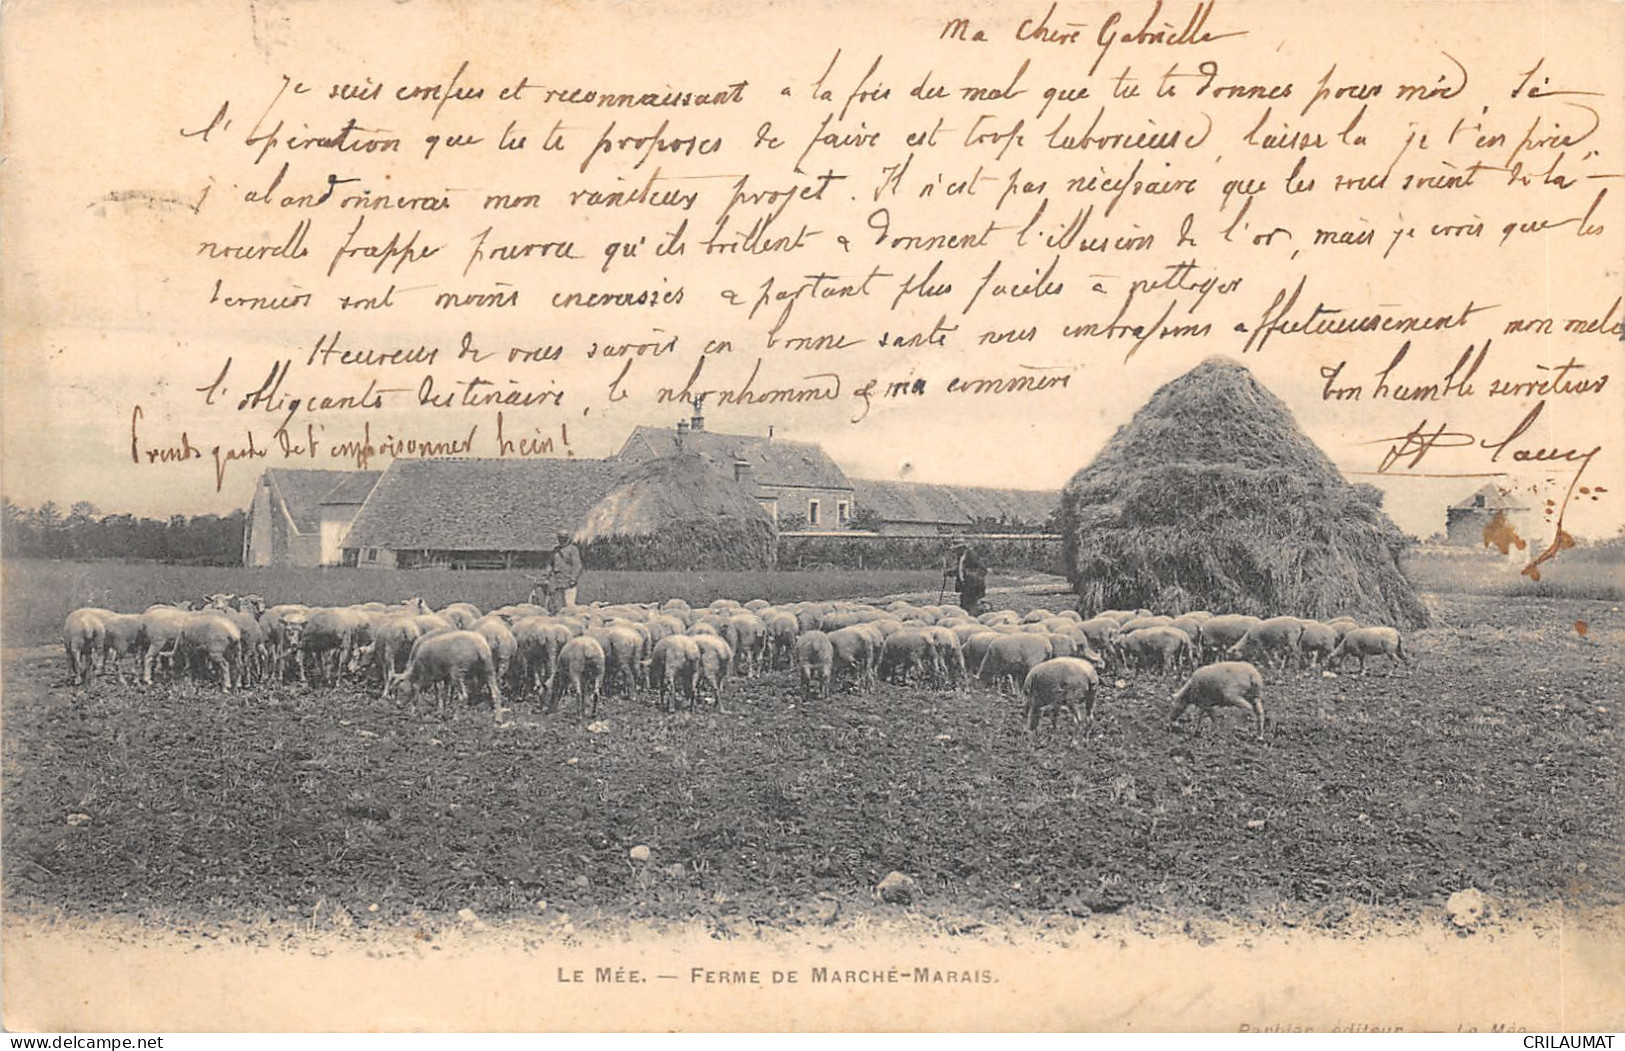 Ma chère Gabrielle
Je suis confus et reconnaissant à la fois du mal que tu te donnes pour moi, si
l'opération que tu te proposes de faire est trop laborieuse, laisse la je t'en prie,
j'abandonnerai mon vaniteux projet. Il n'est pas nécessaire que les sous soient de la
nouvelle frappe pourvu qu'ils brillent & donnent l'illusion de l'or, mais je crois que les
derniers sont moins encrassés & partant plus faciles à nettoyer
Heureux de vous savoir en bonne santé nous embrassons affectueusement mon
l'obligeante destinaire, le & ma commère
Ton humble serviteur
Prends garde de t'empoisonner, hein!
H
LE MÉE. — FERME DE MARCHÉ-MARAIS.
Barbier, éditeur. — Le Mée
CRILAUMAT